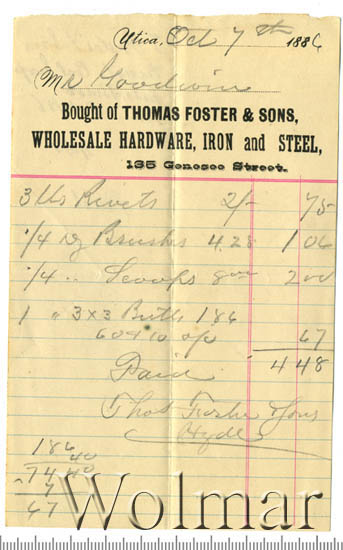 Utica, Oct 7th 1886
Mr Goodwin
Bought of THOMAS FOSTER & SONS,
WHOLESALE HARDWARE, IRON and STEEL,
135 Genesee Street.
3 lbs Rivets 2/- 75
1/4 dz Brushes 4.25 1 06
1/4 " Scoops 8 00 2 00
1 " 3x3 Butts 1 86
60 & 10 o/o 67
4 48
Paid
Thos Foster & Sons
Hyde
186
74 40
7 40
67
Wolmar